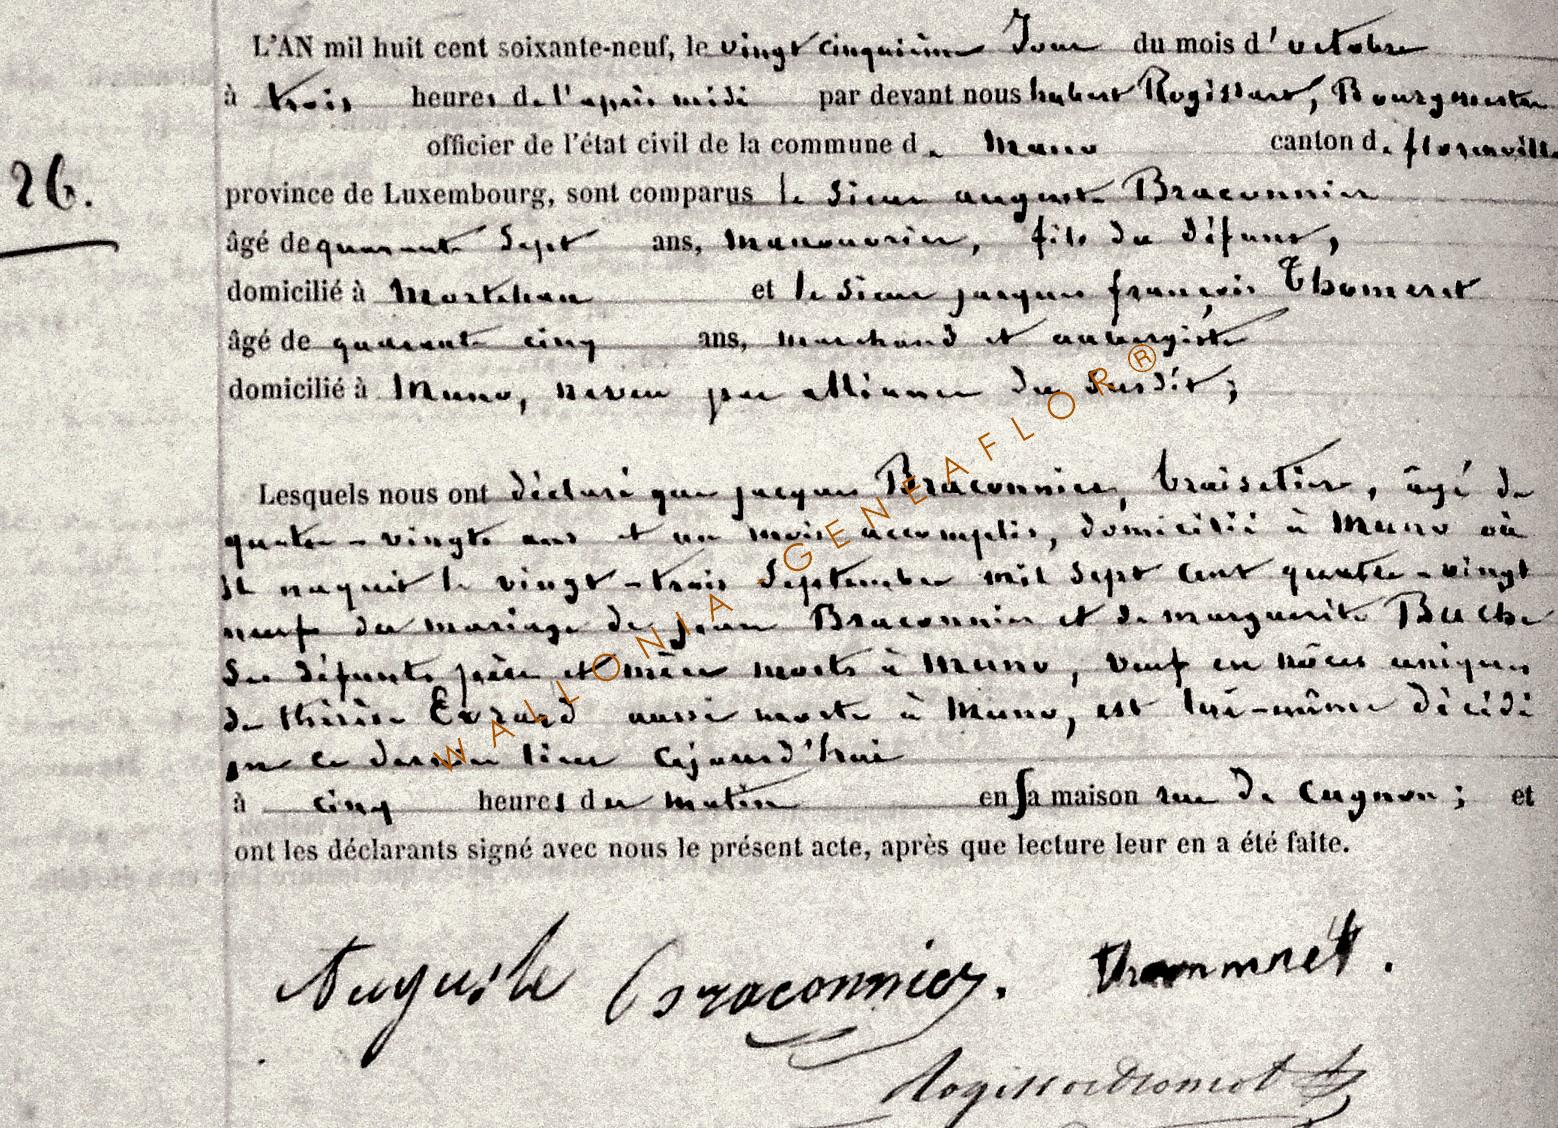 L'AN mil huit cent soixante-neuf, le vingt cinquième Jour du mois d'octobre
à trois heures de l'après midi par devant nous hubert Rogissart, Bourgmestre
officier de l'état civil de la commune de Muno canton de florenville
26.
province de Luxembourg, sont comparus le sieur auguste Braconnier
âgé de quarante sept ans, manouvrier, fils du défunt,
domicilié à Mortehan et le sieur jacques françois Thomeret
âgé de quarante cinq ans, marchand et aubergiste
domicilié à Muno, neveu par alliance du susdit;
Lesquels nous ont déclaré que jacques Braconnier, braisetier, âgé de
quatre-vingts ans et un mois accomplis, domicilié à Muno où
il naquit le vingt-trois Septembre mil sept cent quatre-vingt
neuf du mariage de jean Braconnier et de marguerite
des défunts père et mère morts à Muno, veuf en nôces uniques
de thérèse Evrard aussi morte à Muno, est lui-même décédé
en ce dernier lieu cejourd'hui
à cinq heures du matin en sa maison rue de Cugnon; et
ont les déclarants signé avec nous le présent acte, après que lecture leur en a été faite.
Auguste Braconnier.
WALLONIA - GENEAFLOR®